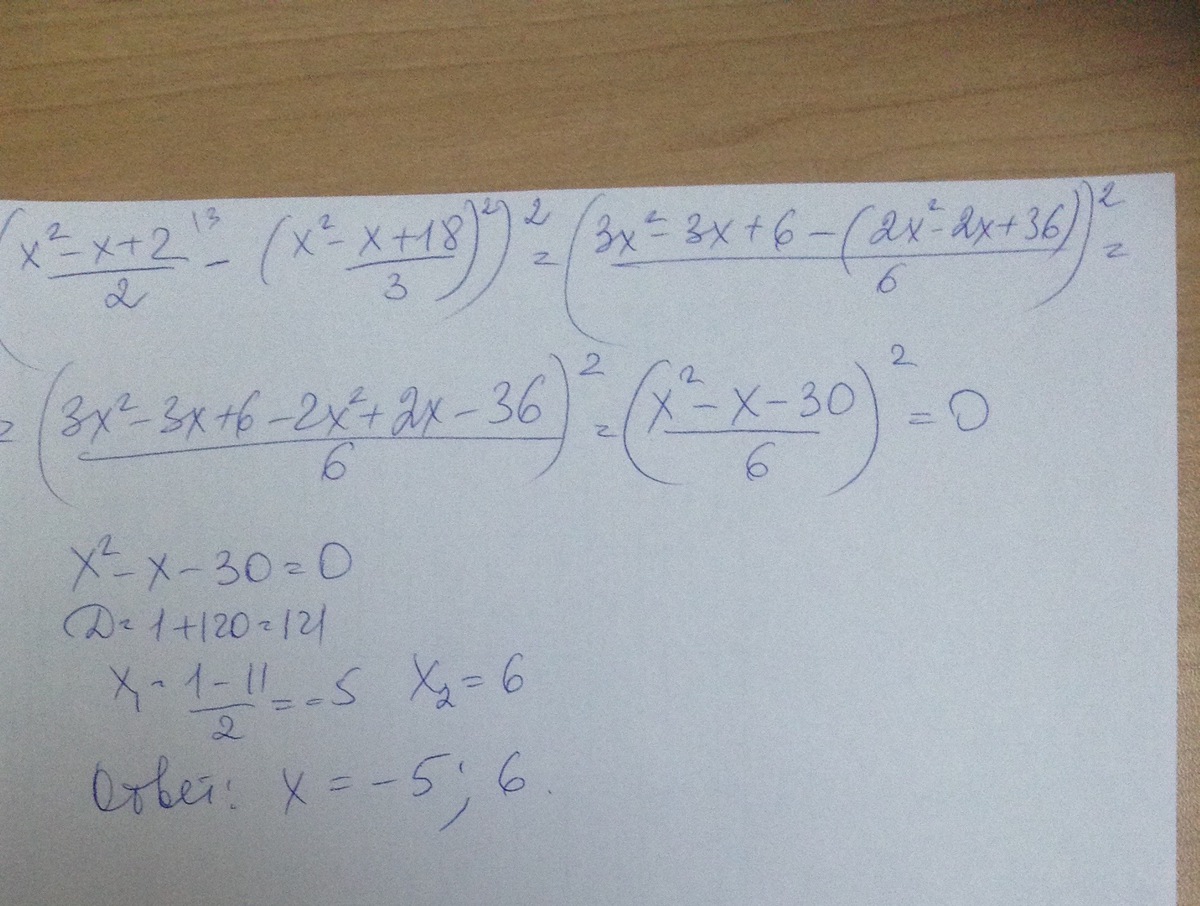 ((x²-x+2)/2 \3 - (x²-x+18)/3)²)² = ((3x²-3x+6-(2x²-2x+36))/6)² =
= ((3x²-3x+6-2x²+2x-36)/6)² = ((x²-x-30)/6)² = 0
x²-x-30=0
D=1+120=121
x₁=(1-11)/2=-5 x₂=6
Ответ: x=-5; 6.